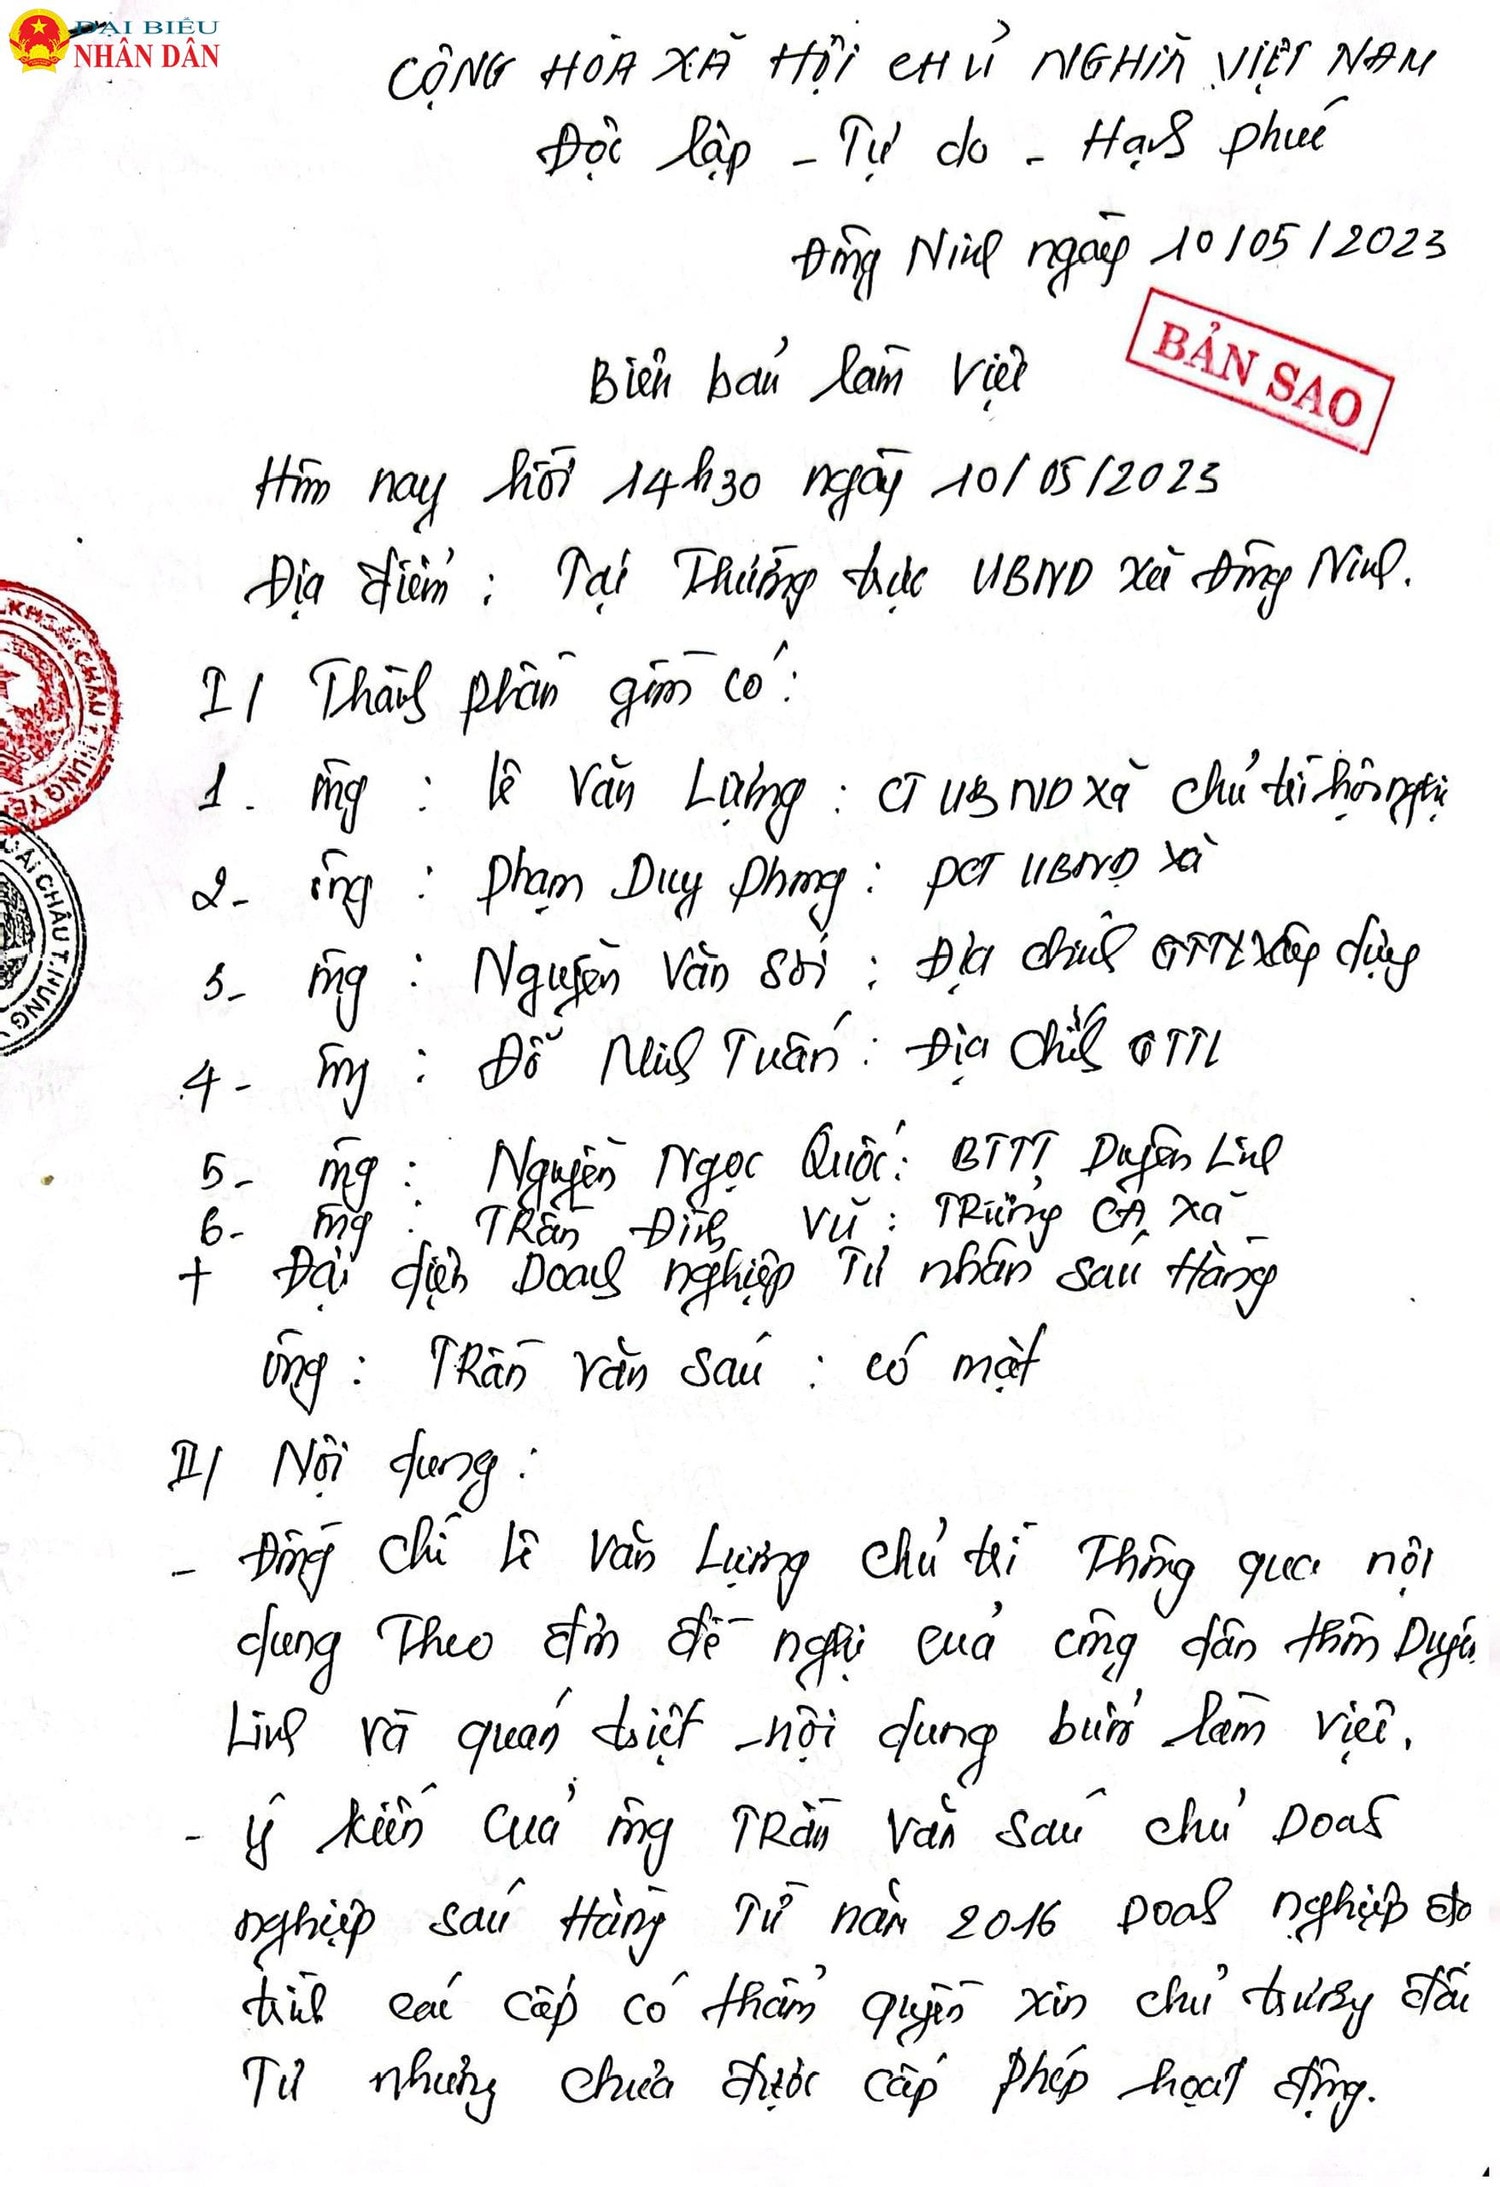 ĐẠI BIỂU
NHÂN DÂN
CỘNG HÒA XÃ HỘI CHỦ NGHĨA VIỆT NAM
Độc lập - Tự do - Hạnh phúc
Đông Ninh ngày 10/05/2023
BẢN SAO
Biên bản làm việc
Hôm nay hồi 14h30 ngày 10/05/2023
Địa điểm : Tại Thường trực UBND xã Đông Ninh.
I/ Thành phần gồm có :
1. ông : Lê Văn Lượng : CT UBND xã chủ trì hội nghị
2- ông : Phạm Duy Phong : PCT UBND xã
3- ông : Nguyễn Văn Sơi : Địa chính GTTL xây dựng
4- ông : Đỗ Minh Tuấn : Địa chính GTTL
5- ông : Nguyễn Ngọc Quốc : BTTT Duyên Linh
6- ông : Trần Đình Vũ : Trưởng CA xã
+ Đại diện Doanh nghiệp Tư nhân Sáu Hàng
ông : Trần Văn Sáu : có mặt
II/ Nội dung :
- Đồng chí Lê Văn Lượng chủ trì Thông qua nội
dung Theo đơn đề nghị của công dân thôn Duyên
Linh và quán triệt nội dung buổi làm việc.
- Ý kiến của ông Trần Văn Sáu chủ Doanh
nghiệp Sáu Hàng Từ năm 2016 Doanh nghiệp đã
trình các cấp có thẩm quyền xin chủ trương đầu
Tư nhưng chưa được cấp phép hoạt động.
CHÂU T.HƯNG YÊN
CHÂU T.HƯNG